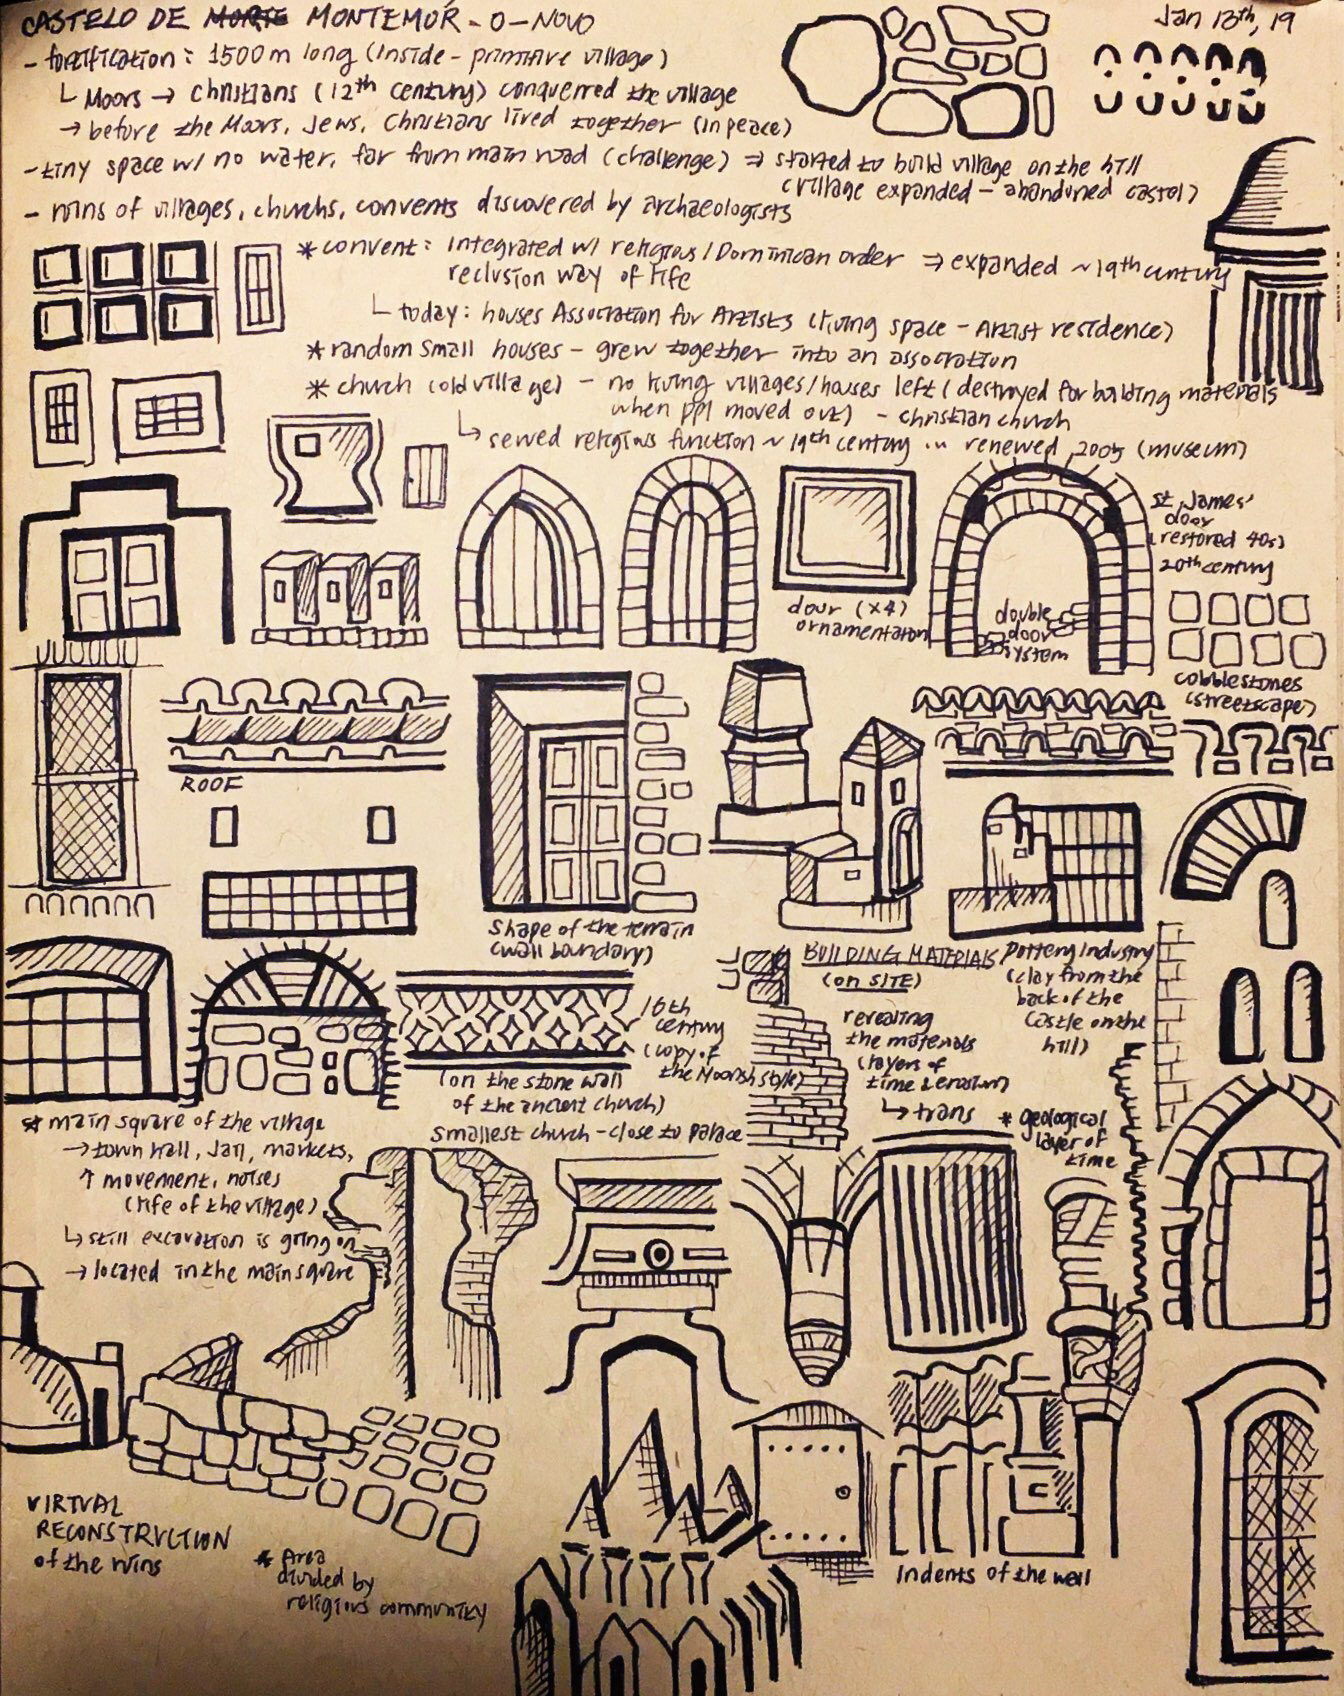 CASTELO DE MONTEMOR-O-NOVO
Jan 13th, 19
- fortification: 1500m long (inside - primitive village)
└ Moors → Christians (12th century) conquerred the village
→ before the Moors, Jews, Christians lived together (in peace)
- tiny space w/ no water, far from main road (challenge) ⇒ started to build village on the hill
(village expanded - abandoned castel)
- ruins of villages, churchs, convents discovered by archaeologists
* convent: integrated w/ religious/Dominican order ⇒ expanded ~19th century
reclusion way of life
└ today: houses Association for Artists (living space - Artist residence)
* random small houses - grew together into an association
* church (old village) - no living villages/houses left (destroyed for building materials
when ppl moved out) - christian church
↳ served religious function ~ 19th century ... renewed 2005 (museum)
St. James'
door
(restored 40s)
20th century
door (x4)
ornamentation
double
door
system
cobblestones
(streetscape)
ROOF
shape of the terrain
(wall boundary)
BUILDING MATERIALS
(on SITE)
Pottery industry
(clay from the
back of the
castle on the
hill)
revealing
the materials
(layers of
time & erosion)
↳ trans
* geological
layer of
time
16th
century
(copy of
the Moorish style)
(on the stone wall
of the ancient church)
smallest church - close to palace
* main square of the village
→ town hall, Jail, markets,
↑ movement, noises
(life of the village)
↳ still excavation is going on
→ located in the main square
VIRTUAL
RECONSTRUCTION
of the ruins
* Area
divided by
religious community
Indents of the wall